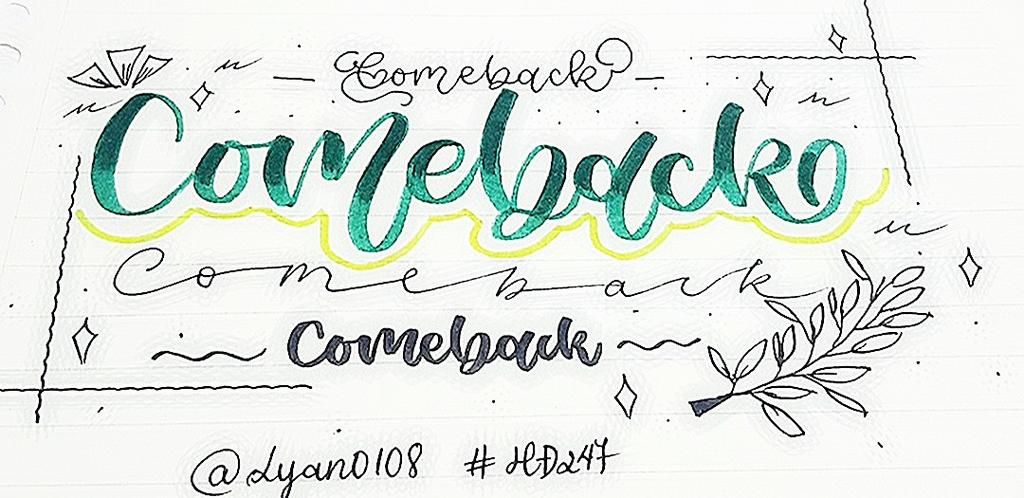 Comeback
Comeback
Comeback
Comeback
@Lyan0108 #HD247